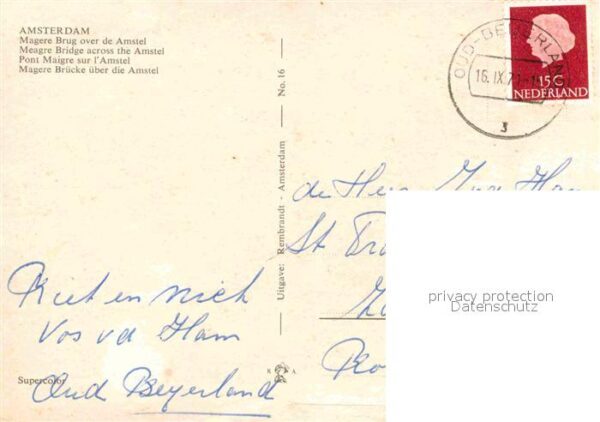 AMSTERDAM
Magere Brug over de Amstel
Meagre Bridge across the Amstel
Pont Maigre sur l'Amstel
Magere Brücke über die Amstel
No. 16
Uitgave: Rembrandt - Amsterdam
OUD-BEIJERLAND
16.IX.7
3
15 C
NEDERLAND
de Heer
St
privacy protection
Datenschutz
Riet en Nick
Vos vd Ham
Oud Beyerland
Supercolor
K A